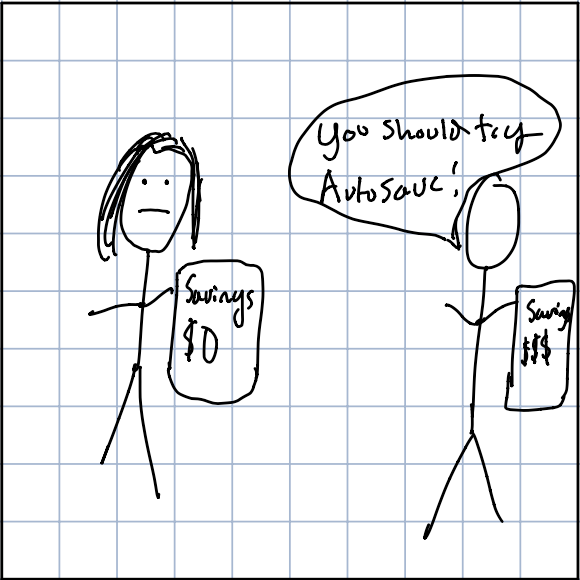 you should try
Autosave!
Savings
$0
Savings
$$$